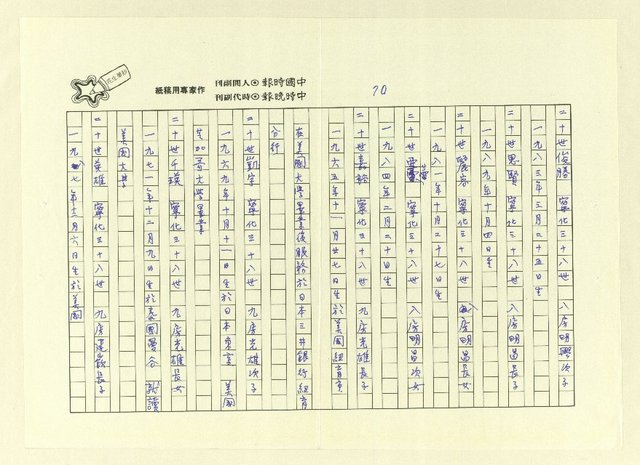 中國時報⊙人間副刊
中時晚報⊙時代副刊
作家專用稿紙
70
二十世俊勝 寧化三十八世 八房明興次子
一九八三年三月二十五日生
二十世思賢 寧化三十八世 八房明昌長子
一九八九年十月四日生
二十世麗 寧化三十八世 八房明昌長女
一九八一年十月二十七日生
二十世 寧化三十八世 八房明昌次女
一九八四年二月二十日生
二十世嘉 寧化三十八世 九房光雄長子
一九六五年十一月廿七日生於美國紐育市
在美國大學畢業後服務於日本三井銀行紐育
分行
二十世凱宇 寧化三十八世 九房光雄次子
一九六九年十月十一日生於日本東京 美國
芝加哥大學畢業
二十世千瑛 寧化三十八世 九房光雄長女
一九七一年十二月九日生於泰國曼谷 就讀
美國大學
二十世英雄 寧化三十八世 九房 長子
一九 七年十二月六日生於美國